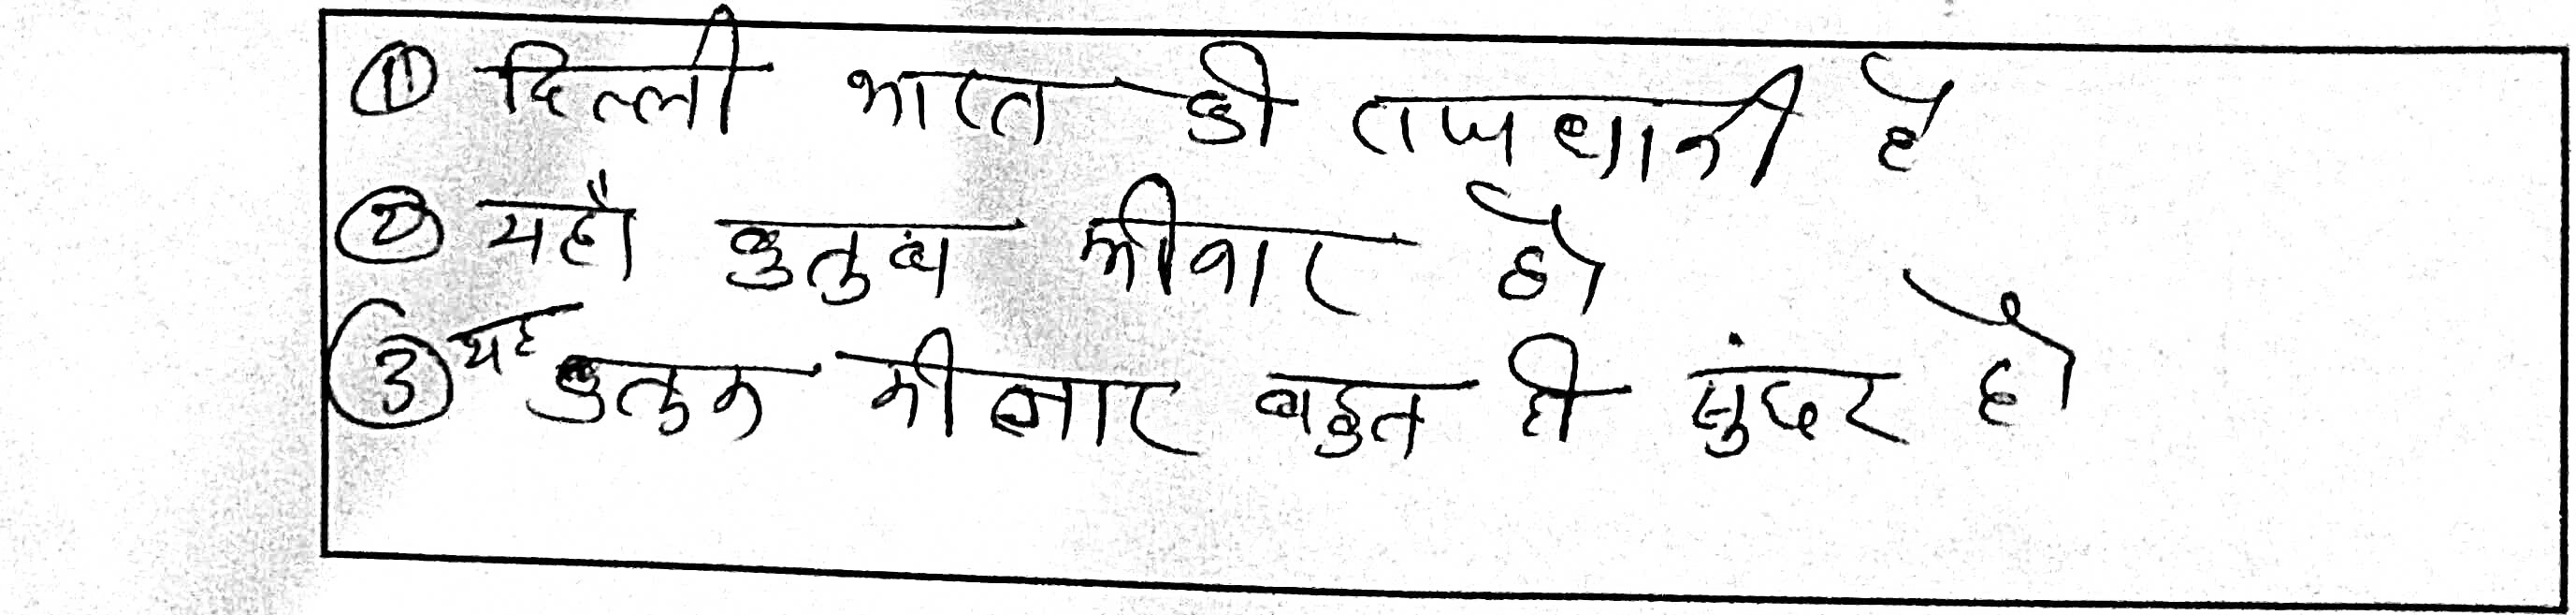 ① दिल्ली भारत की राजधानी है
② यहाँ कुतुब मीनार है
③ यह कुतुब मीनार बहुत ही सुंदर है